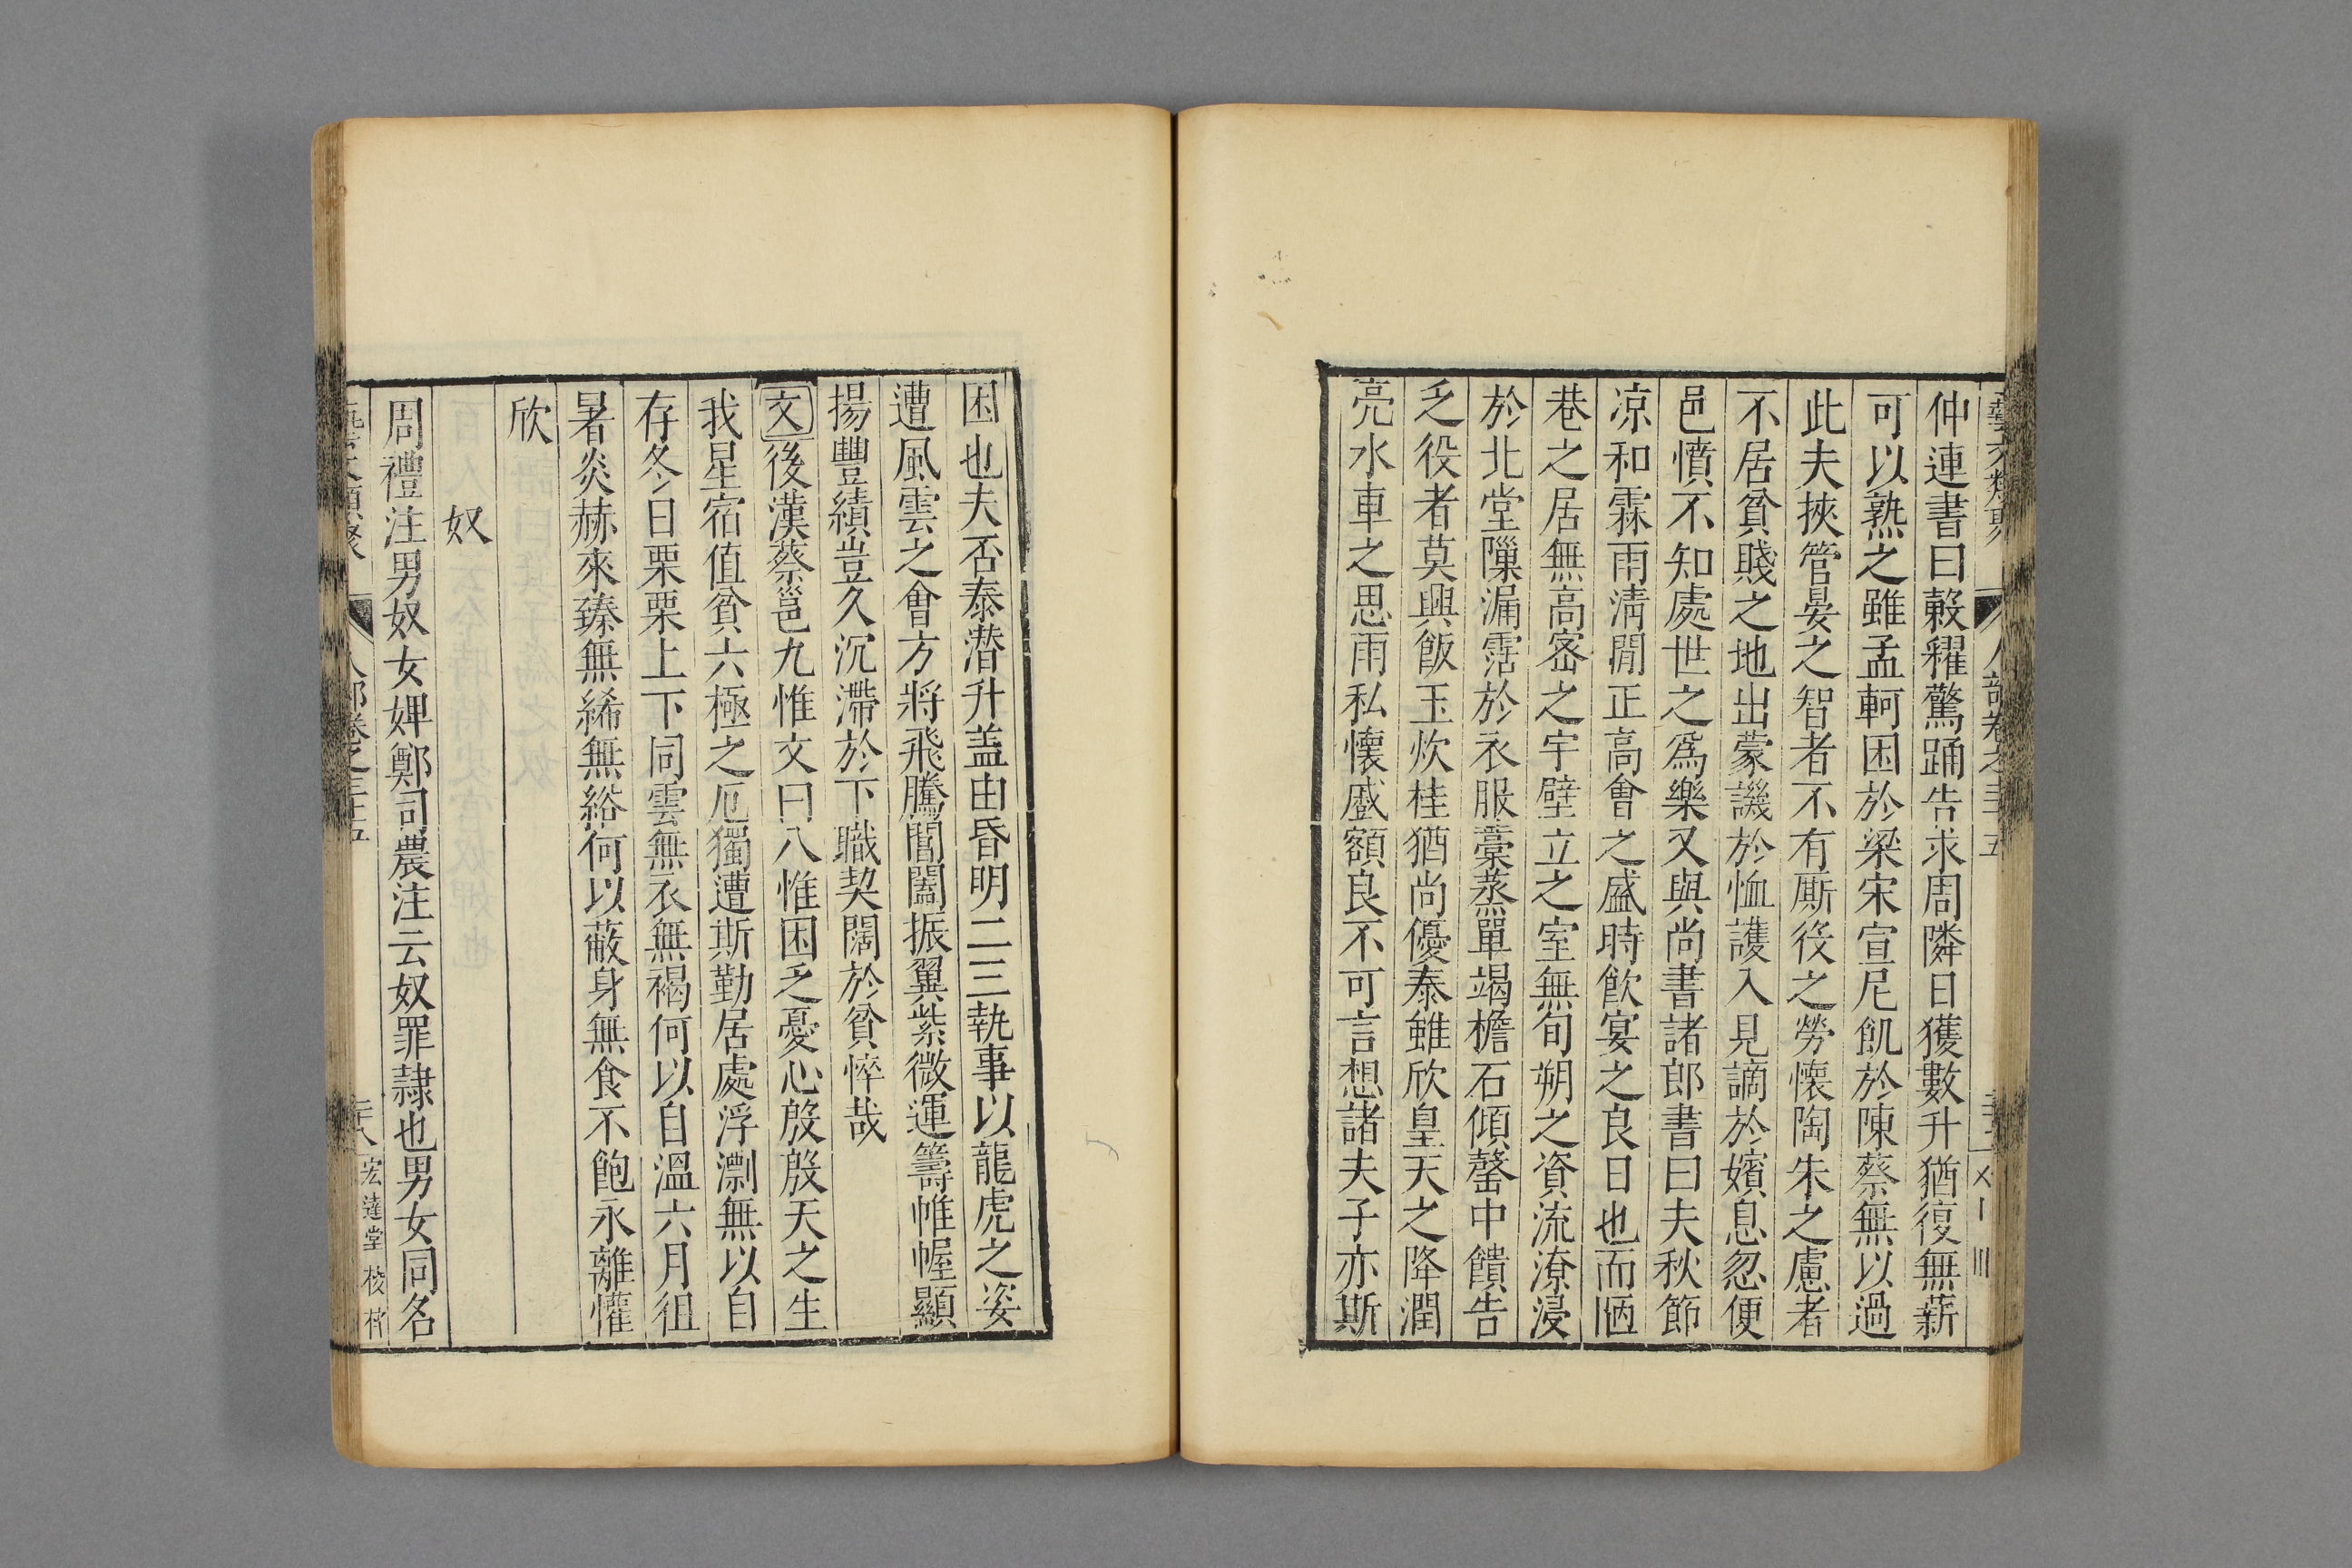 仲連書曰穀糴驚踊告求周隣日獲數升猶復無薪
可以熟之雖孟軻困於梁宋宣尼飢於陳蔡無以過
此夫挾管晏之智者不有厮役之勞懷陶朱之慮者
不居貧賤之地出蒙譏於恤護入見謫於嬪息忽便
邑憤不知處世之爲樂又與尚書諸郎書曰夫秋節
凉和霖雨淸閒正高會之盛時飲宴之良日也而恆
巷之居無高密之宇壁立之室無旬朔之資流潦浸
於北堂隟漏霑於衣服藁蒸單竭檐石傾罄中饋告
乏役者莫興飯玉炊桂猶尚優泰雖欣皇天之降潤
亮水車之思雨私懷蹙額良不可言想諸夫子亦斯
困也夫否泰潜升盖由昏明二三執事以龍虎之姿
遭風雲之會方將飛騰閶闔振翼紫微運籌帷幄顯
揚豐績豈久沉滯於下職契闊於貧悴哉
文後漢蔡邕九惟文曰八惟困乏憂心殷殷天之生
我星宿值貧六極之厄獨遭斯勤居處浮漂無以自
存冬日栗栗上下同雲無衣無褐何以自溫六月徂
暑炎赫來臻無絺無綌何以蔽身無食不飽永離懽
欣
奴
周禮注男奴女婢鄭司農注云奴罪隷也男女同名
藝文類聚 人部卷之三十五 二十八 宏達堂校